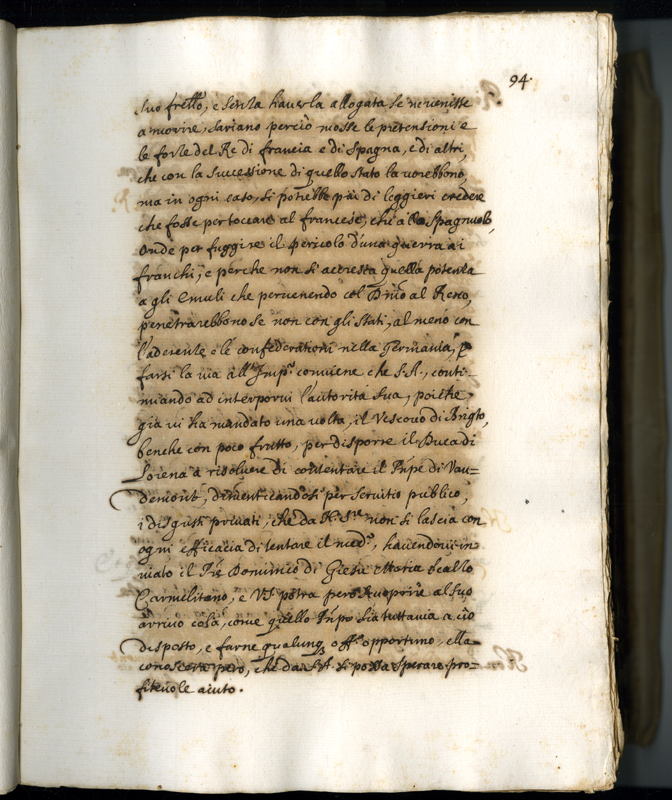 94.
suo frello, e senza haverla allogata se ne venisse
a morire, sariano perciò mosse le pretensioni e
le forze del Re di francia e di Spagna, e di altri,
che con la successione di quello stato lavorebbono,
ma in ogni caso, si potrebbe più di leggieri credere
che fosse per toccare al francese, che allo Spagnuolo,
Onde per fuggire il pericolo d'una guerra ai
fianchi, e perche non si accresca quella potenza
a gli emuli che pervenendo col Dnio al Reno,
penetrarebbono se non con gli stati, al meno con
l'aderenze e le confederationi nella Germania, p
farsi la via all'Impo. conviene che S.A., conti-
nuando ad interporvi l'autorità sua, poiche
già vi ha mandato una volta, il Vescovo di
benche con poco frutto, per disporre il Duca di
Lorena à risolvere di contentare il Pnpe di Vau=
demont, dimenticandosi per servitio publico,
i disgusti privati, che da N. Sre non si lascia con
ogni efficacia di tentare il medo, havendovi in-
viato il Pre Domenico di Giesu Maria scalzo
Carmilitano, e VS potra però scoprire al suo
arrivo colà, come quello Pnpe sia tuttavia a ciò
disposto, e farne qualunq offo opportuno, ella
conoscerà però, che da S.A. si possa sperare pro=
fitevole aiuto.